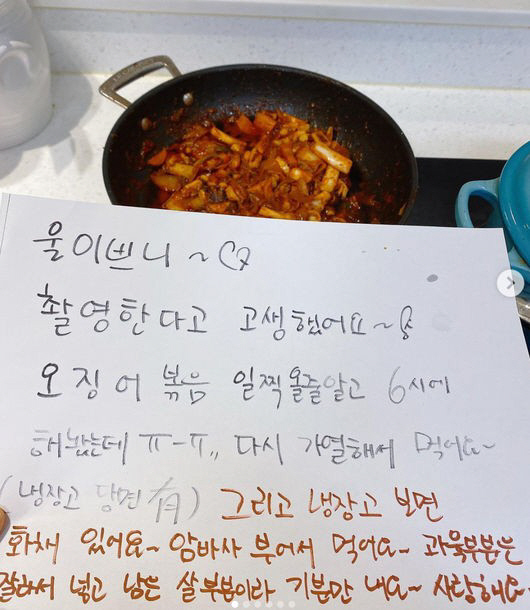 울이쁘니~♡
촬영한다고 고생했어요~
오징어 볶음 일찍올줄알고 6시에
해놨는데 ㅠ-ㅠ,, 다시 가열해서 먹어요~
(냉장고 당면 有) 그리고 냉장고 보면
화채 있어요~ 암바사 부어서 먹어요~ 과육부분은
잘라서 넣고 남은 살부분이라 기분만 내요~ 사랑해요